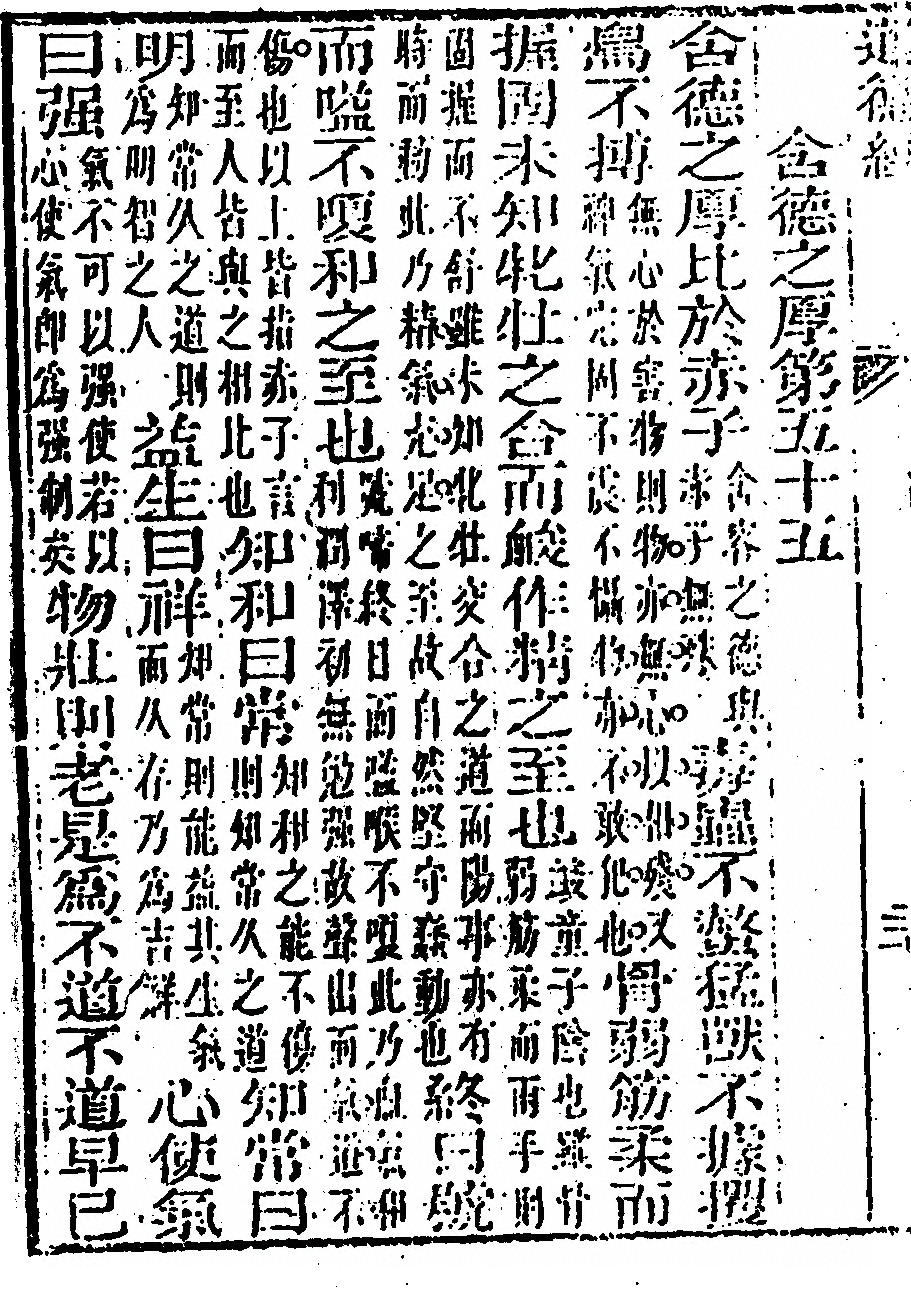 道德經
三
含德之厚第五十五
含德之厚比於赤子含容之德與赤子無殊毒蟲不螫猛獸不據攫
鳥不搏無心於害物則物亦無心以相殘又神氣完固不喪不懾物亦不敢犯也骨弱筋柔而
握固未知牝牡之合而朘作精之至也朘童子陰也雖骨弱筋柔而兩手則
固握而不舒雖未知牝牡交合之道而陽事亦有時而動此乃精氣充足之至故自然堅守發動也終日號
而嗌不嗄和之至也號啼終日而嗌喉不嗄此乃和利潤澤初無勉强故聲出而氣道不
傷也以上皆指赤子言而至人皆與之相比也知和曰常知和之能不傷則知常久之道知常曰
明知常久之道則為明智之人益生曰祥知常則能益其生氣而久存乃為吉祥心使氣
曰强氣不可以强使若以心使氣即為强制矣物壯則老是為不道不道早已